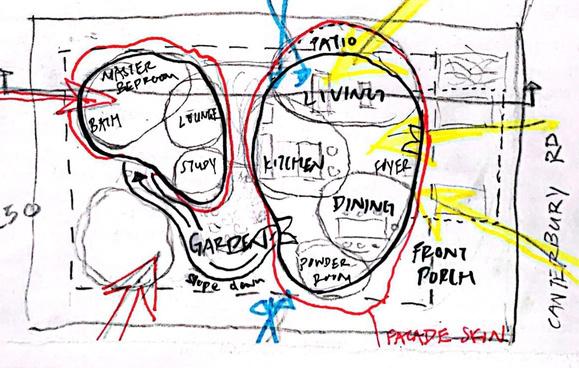 PATIO
MASTER
BEDROOM
LIVING
BATH
LOUNGE
STUDY
KITCHEN
FOYER
DINING
GARDEN
POWDER
ROOM
slope down
FRONT
PORCH
CANTERBURY RD
FACADE SKIN
50